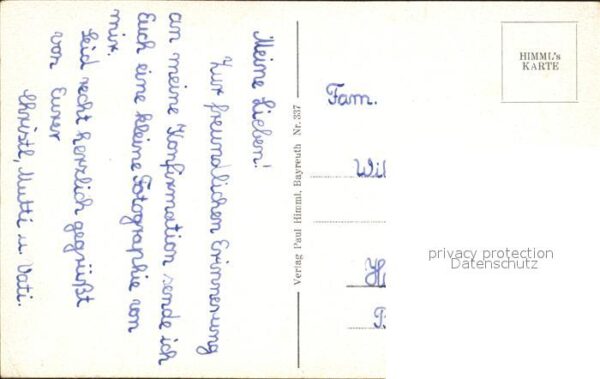 Meine Lieben!
Zur freundlichen Erinnerung
an meine Konfirmation sende ich
Euch eine kleine Fotographie von
mir.
Seid recht herzlich gegrüßt
von Eurer
Christl, Mutti u. Vati.
Verlag Paul Himml, Bayreuth Nr. 337
HIMML's
KARTE
Fam.
Wil
H
privacy protection
Datenschutz